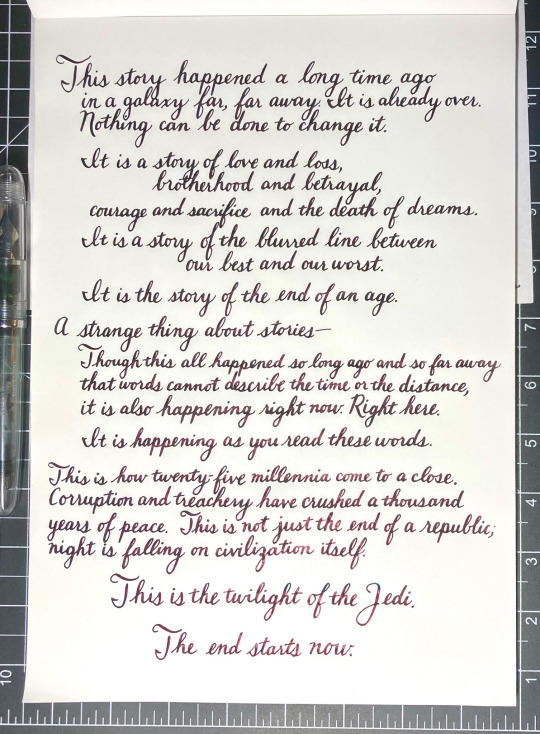 This story happened a long time ago
in a galaxy far, far away. It is already over.
Nothing can be done to change it.
It is a story of love and loss,
brotherhood and betrayal,
courage and sacrifice and the death of dreams.
It is a story of the blurred line between
our best and our worst.
It is the story of the end of an age.
A strange thing about stories—
Though this all happened so long ago and so far away
that words cannot describe the time or the distance,
it is also happening right now. Right here.
It is happening as you read these words.
This is how twenty-five millennia come to a close.
Corruption and treachery have crushed a thousand
years of peace. This is not just the end of a republic;
night is falling on civilization itself.
This is the twilight of the Jedi.
The end starts now.
12
11
10
9
8
7
6
5
4
3
2
1
10